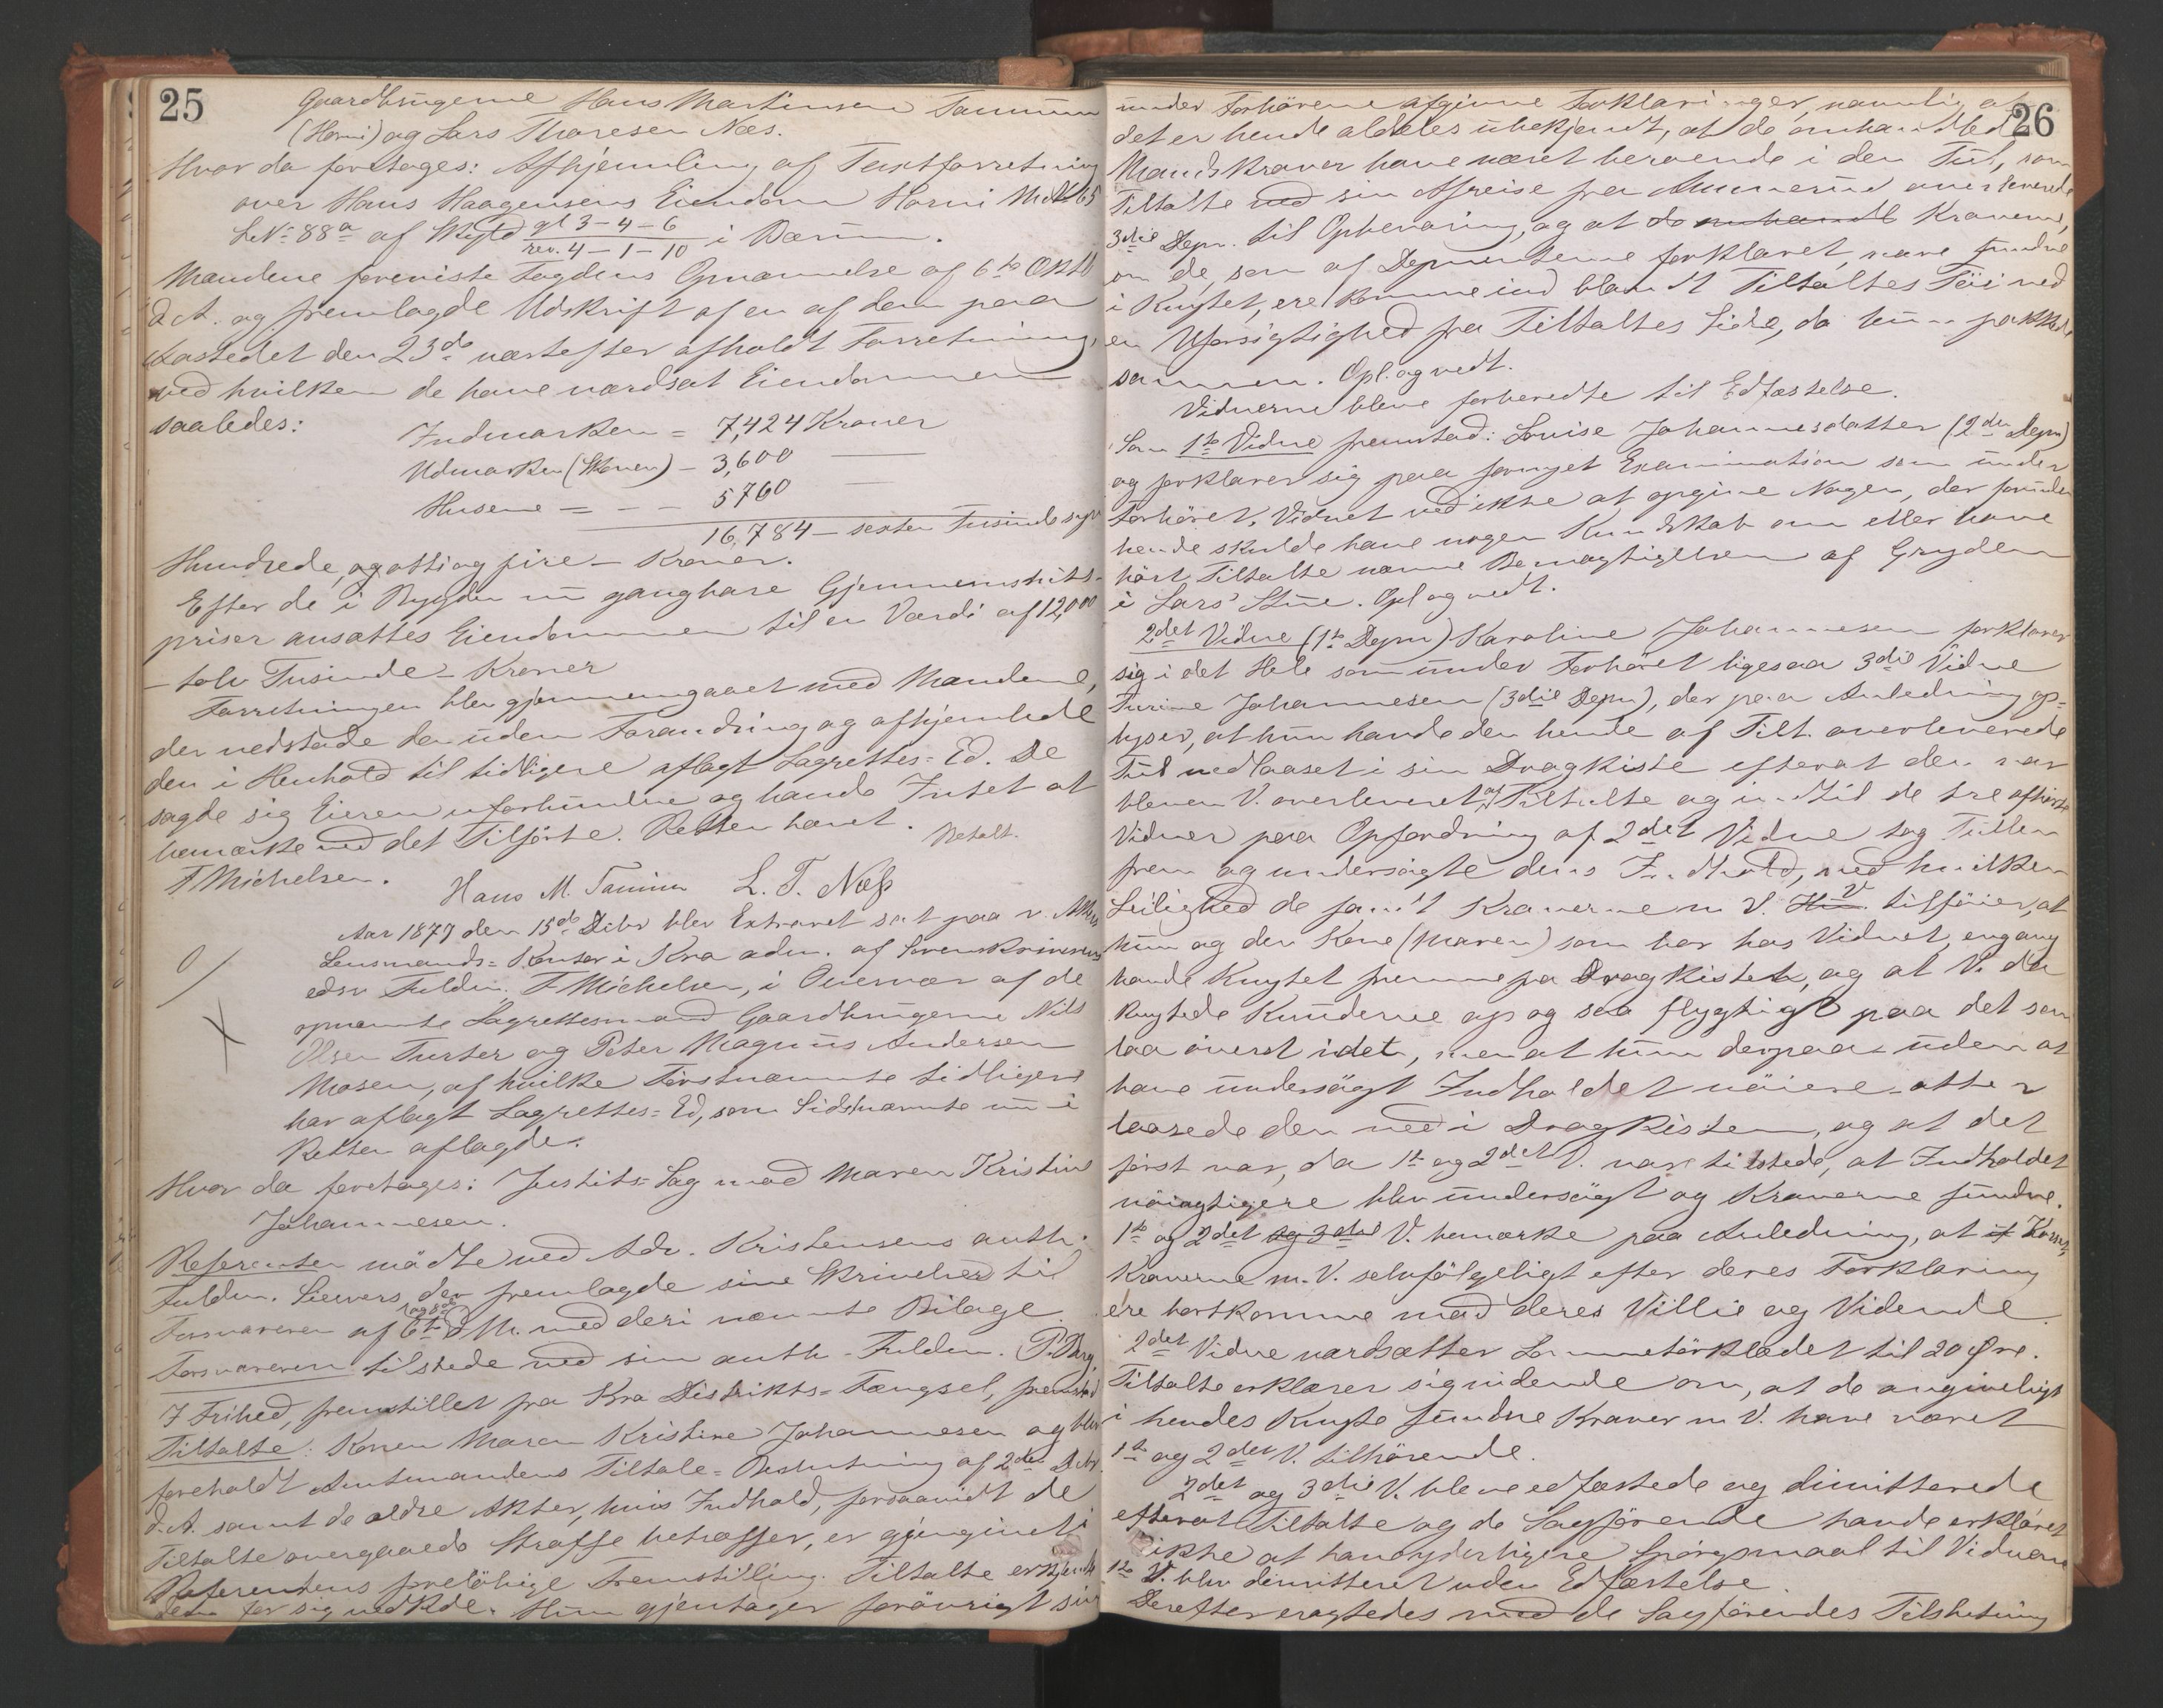 25
Gaardbrugerne Hans Martinsen Tanum
(Horni) og Lars Thoresen Næs.
Hvor da foretages: Afhjemling af Taxtforretning
over Hans Haagensens Eiendom Horni M.N. 65
L.No 88a af Skyld gl 3-4-6 i Bærum.
rev. 4-1-10
Mændene foreviste Fogdens Opnævnelse af 6te Oktb
d.A. og fremlagde Udskrift af en af dem paa
Aastedet den 23de næstefter afholdt Forretning,
ved hvilken de have værdsat Eiendommen
saaledes:
Indmarken = 7,424 Kroner
Udmarken (Skoven) - 3,600 —
Husene = - - 5760 —
16,784 - sexten Tusinde syv
Hundrede og otti og fire - Kroner.
Efter de i Bygden nu gangbare Gjennemsnits-
priser ansattes Eiendommen til en Værdi af 12,000
- tolv Tusinde - Kroner
Forretningen blev gjennemgaaet med Mændene,
der vedstode den uden Forandring og afhjemlede
den i Henhold til tidligere aflagt Lagrettes-Ed. De
sagde sig Eieren uforbundne og havde Intet at
bemærke ved det Tilførte. Retten hævet.
Betalt.
F Michelsen.
Hans M. Tanum L. T. Næss
Aar 1877 den 15de Debr blev Extraret sat paa v. Akers
Lensmands-Kontor i Kra adm. af Sorenskriverens
edsv Fuldm. F Michelsen, i Overvær af de
opnævnte Lagrettesmænd Gaardbrugerne Nils
Olsen Furter og Peter Magnus Andersen
Mosen, af hvilke Førstnævnte tidligere
har aflagt Lagrettes-Ed, som Sidstnævnte nu i
Retten aflagde.
Hvor da foretages: Justits-Sag mod Maren Kristine
Johannesen.
Referenten mødte ved Adv. Kristensens auth.
Fuldm. Sievers, der fremlagde sine Skrivelser til
Forsvareren af 6te og 8de d.M. med deri nævnte Bilage.
Forsvareren tilstede ved sin auth. Fuldm. P. Berg.
I Frihed, fremstillet fra Kra Distrikts-Fængsel, fremstod
Tiltalte: Konen Maren Kristine Johannesen og blev
foreholdt Amtmandens Tiltale-Beslutning af 2den Debr
d.A. samt de ældre Akter, hvis Indhold, forsaavidt de
Tiltalte overgaaede Straffe betræffer, er gjengivet i
Referentens foreløbige Fremstilling. Tiltalte erkjendte
dem for sig vedkde. Hun gjentager forøvrigt sin
26
under Forhørene afgivne Forklaringer, navnlig at
det er hende aldeles ubekjendt, at de omhandlede
Mandskraver have været beroende i den Tul, som
Tiltalte ved sin Afreise fra Ammerud overleverede
3die Depn. til Opbevaring, og at de omhandl Kraverne,
om de, som af Deponenterne forklaret, vare fundne
i Knytet, ere komne ind blandt Tiltaltes Tøi ved
en Uforsigtighed fra Tiltaltes Side, da hun pakkede
sammen. Opl. og vedt.
Vidnerne bleve forberedte til Edfæstelse.
Som 1ste Vidne fremstod: Louise Johannesdatter (2den Depn)
og forklarer sig paa fornyet Examination som under
Forhøret. Vidnet ved ikke at opgive Nogen, der foruden
hende skulde have nogen Kundskab om eller have
hørt Tiltalte nævne Bemægtigelsen af Gryden
i Lars' Stue. Opl og vedt.
2det Vidne (1ste Depn) Karoline Johannesen forklarer
sig i det Hele som under Forhøret ligesaa 3die Vidne
Turine Johannesen (3die Depn), der paa Anledning op-
lyser, at hun havde den hende af Tilt. overleverede
Tul nedlaaset i sin Dragkiste efterat den var
bleven V. overleveret af Tiltalte og indtil de tre afhørte
Vidner paa Opfordring af 2det Vidne tog Tullen
frem og undersøgte dens Indhold, ved hvilken
Leilighed de fandt Kraverne m V. Hun V tilføier, at
hun og den Kone (Maren) som bor hos Vidnet, engang
havde Knytet fremme fra Dragkisten, og at V. da
knytede Kluderne op og saa flygtigt paa det som
laa øverst i det, men at hun derpaa - uden at
have undersøgt Indholdet nøiere - atter
laasede den ned i Dragkisten, og at det
først var, da 1ste og 2det V. vare tilstede, at Indholdet
nøiagtigere blev undersøgt og Kraverne fundne.
1ste og 2det og 3die V. bemærke paa Anledning, at if
Kraverne m. V. selvfølgeligt efter deres Forklaring
ere bortkomne mod deres Villie og Vidende.
2det Vidne værdsætter Lommetørklædet til 20 Øre.
Tiltalte erklærer sig uvidende om, at de angiveligt
i hendes Knyte fundne Kraver m V. have været
1ste og 2det V. tilhørende.
2det og 3die V. bleve edfæstede og dimitterede
efterat Tiltalte og de Sagførende havde erklæret
ikke at have yderligere Spørgsmaal til Vidnerne
1ste V. blev dimitteret uden Edfæstelse.
Derefter eragtedes med de Sagførendes Tilslutning